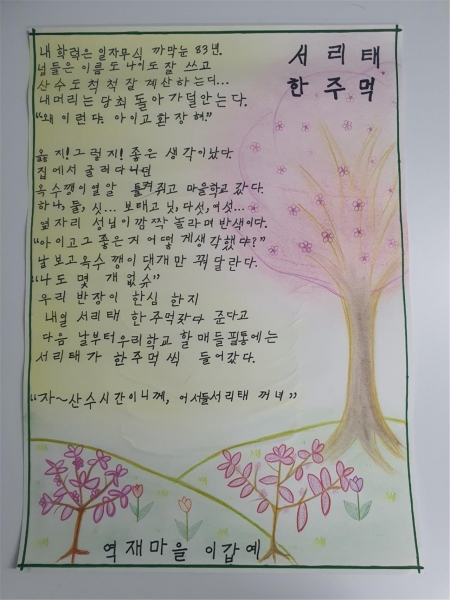 서리태
한주먹
내 학력은 일자무식 까막눈 83년.
넘들은 이름도 나이도 잘 쓰고
산수도 척척 잘 계산하는디...
내머리는 당최 돌아가덜안는다.
"왜 이런댜. 아이고 환장 혀."
옳지! 그렇지! 좋은 생각이났다.
집에서 굴러다니던
옥수깽이열알 틀켜쥐고 마을학교 갔다.
하나, 둘, 싯... 보태고 닛, 다섯, 여섯...
옆자리 성님이 깜짝 놀라며 반색이다.
"아이고 그 좋은거 어떻게생각했댜?"
날보고 옥수깽이 댓개만 꿔 달란다.
"나도 몇 개 없슈"
우리 반장이 한심 한지
내일 서리태 한주먹갖다 준다고
다음 날부터 우리학교 할매들 필통에는
서리태가 한주먹씩 들어갔다.
"자~산수시간이니께, 어서들서리태 꺼녀"
역재마을 이갑예